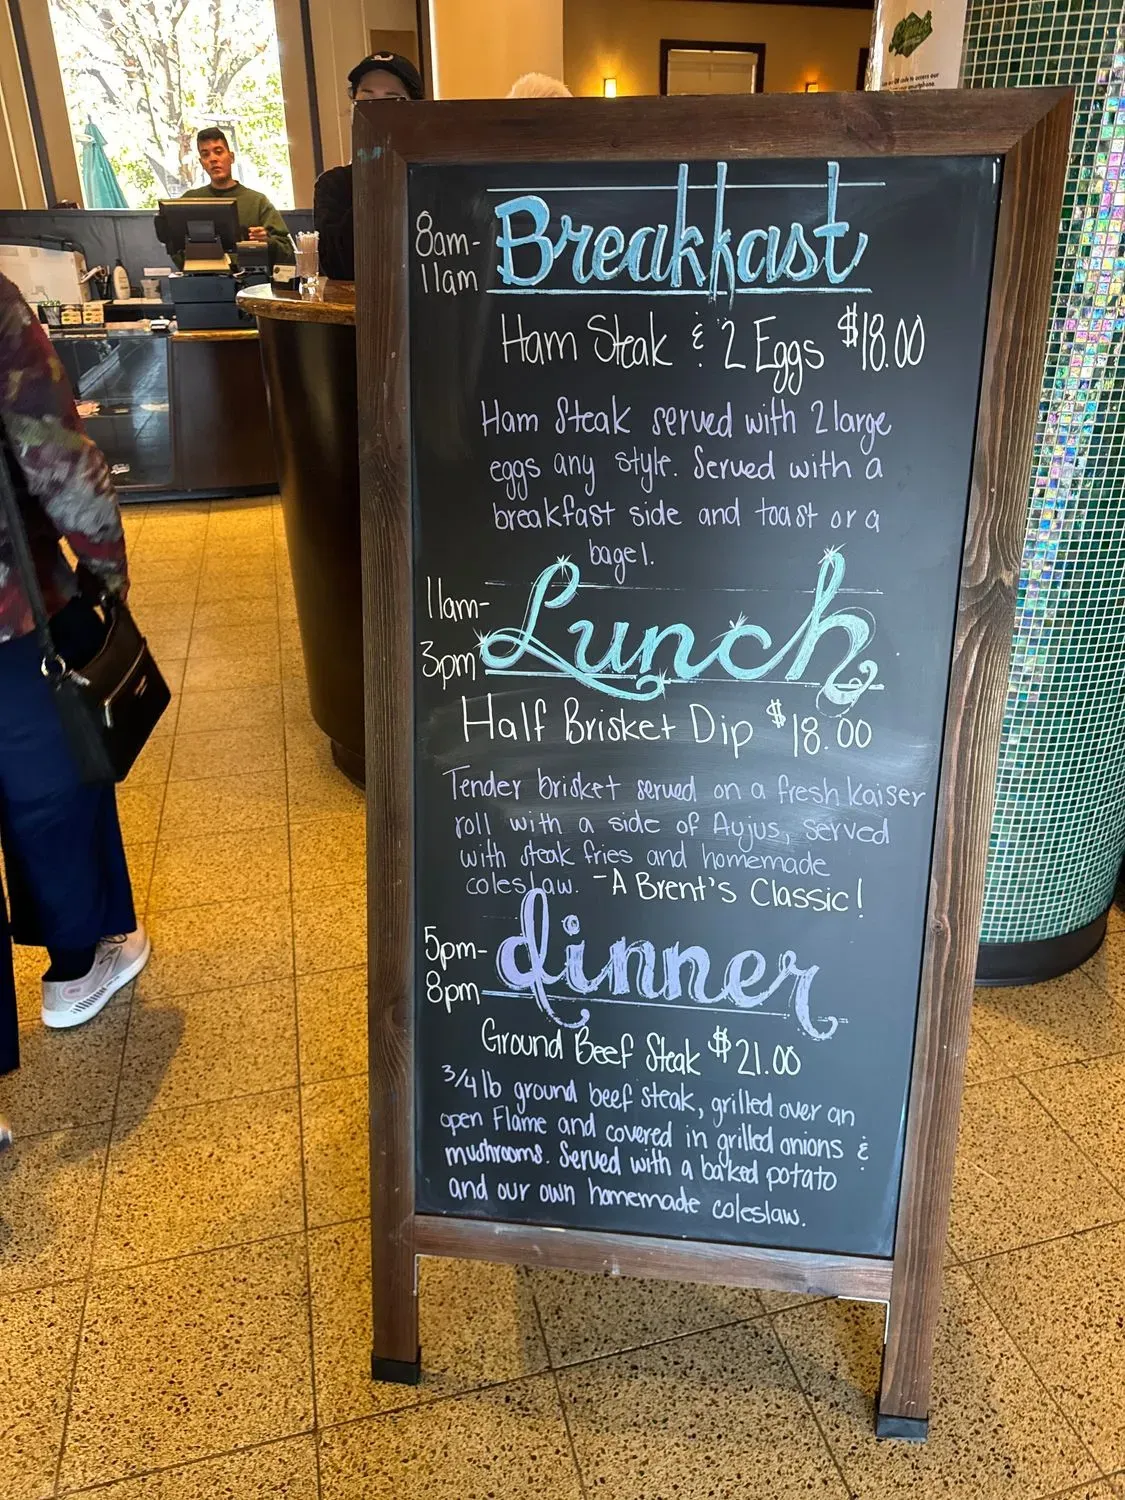 8am-
11am
Breakfast
Ham Steak & 2 Eggs $18.00
Ham Steak served with 2 large
eggs any style. Served with a
breakfast side and toast or a
bagel.
11am-
3pm
Lunch
Half Brisket Dip $18.00
Tender brisket served on a fresh kaiser
roll with a side of Aujus, served
with steak fries and homemade
coleslaw. -A Brent's Classic!
5pm-
8pm
dinner
Ground Beef Steak $21.00
3/4 lb ground beef steak, grilled over an
open flame and covered in grilled onions &
mushrooms. Served with a baked potato
and our own homemade coleslaw.
QR code to access our